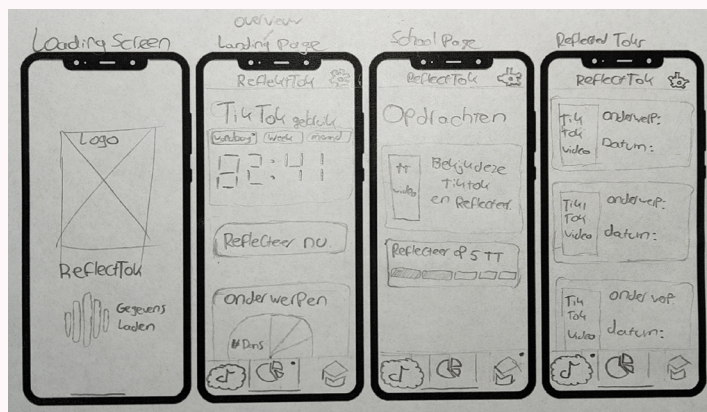 Loading Screen
Logo
ReflectTok
Gegevens
Laden
overview
Landing Page
ReflektTok
TikTok gebruik
Vandaag week maand
02:41
Reflecteer nu
onderwerpen
Dans
School Page
ReflectTok
Opdrachten
TT
video
Bekijk deze
TikTok
en Reflecteer
Reflecteer op 5 TT
Reflected Toks
ReflectTok
Tik
Tok
video
onderwerp:
Datum:
Tik
Tok
video
onderwerp:
datum:
Tik
Tok
video
onderwerp:
datum: